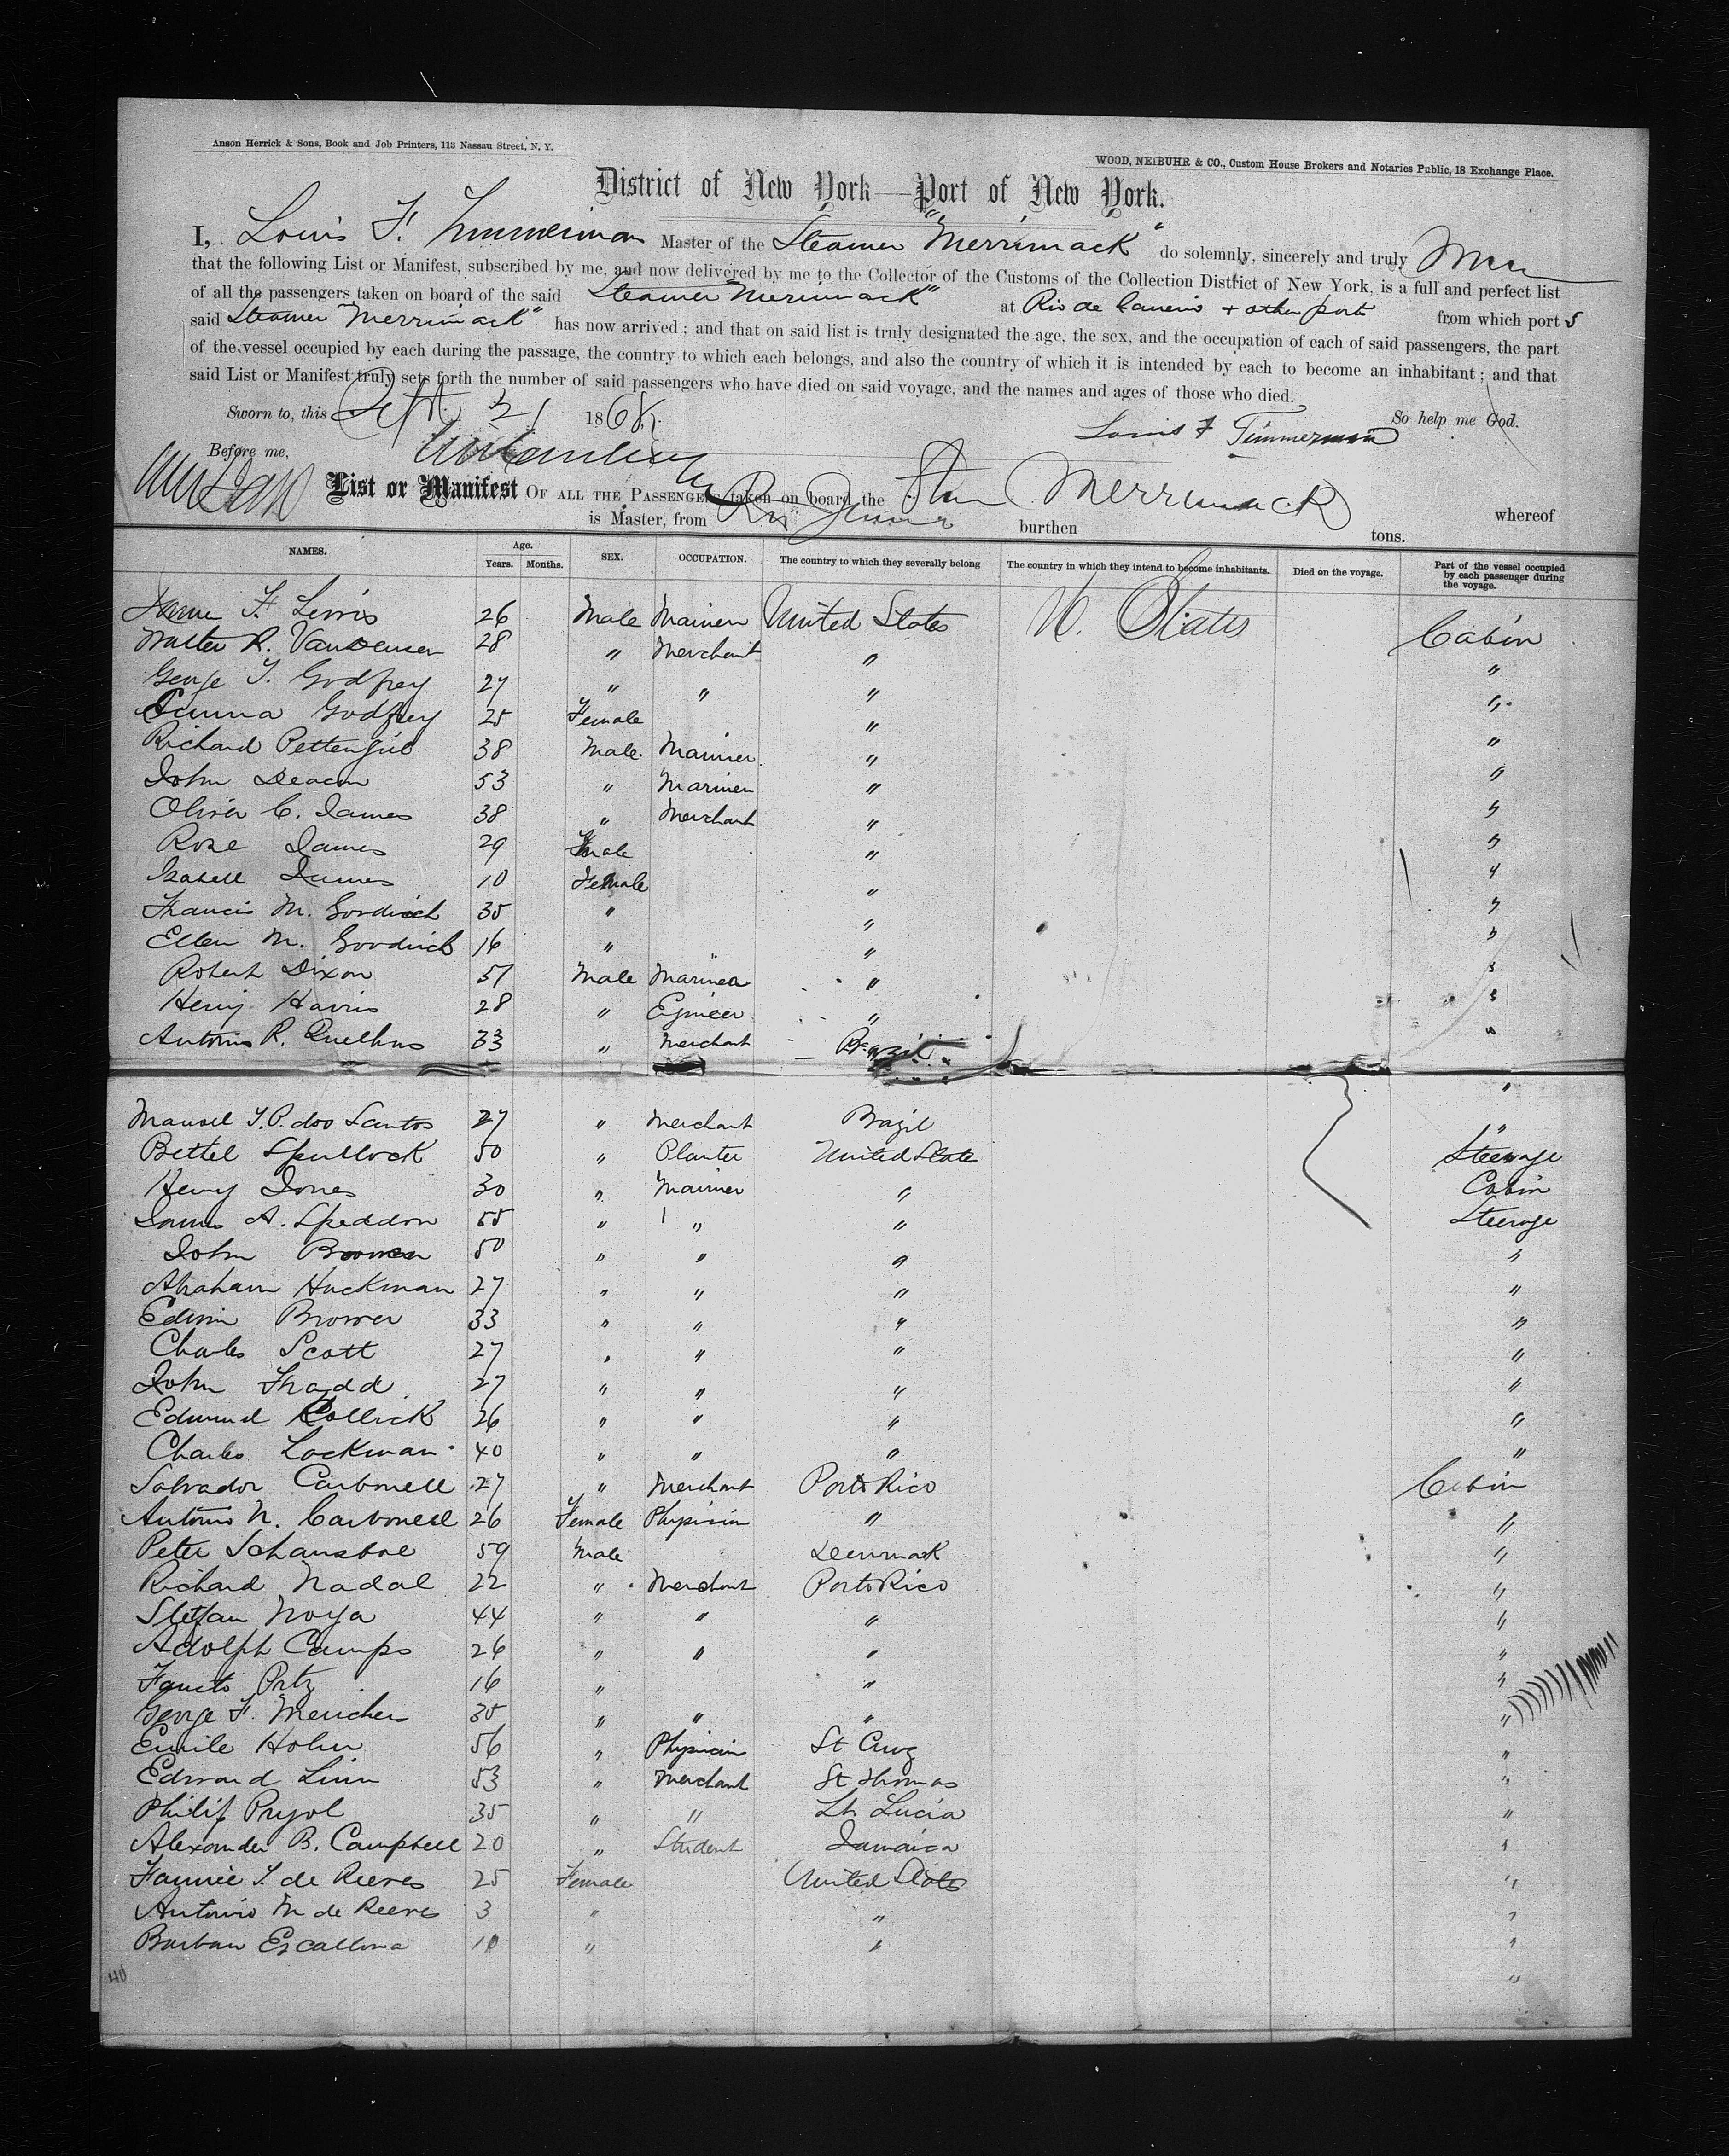 Anson Herrick & Sons, Book and Job Printers, 113 Nassau Street, N. Y.
WOOD, NEIBUHR & CO., Custom House Brokers and Notaries Public, 18 Exchange Place.
District of New York—Port of New York.
I, Louis F. Timmerman Master of the Steamer "Merrimack" do solemnly, sincerely and truly
that the following List or Manifest, subscribed by me, and now delivered by me to the Collector of the Customs of the Collection District of New York, is a full and perfect list
of all the passengers taken on board of the said Steamer Merrimack" at Rio de Janeiro + other ports from which port s
said Steamer "Merrimack" has now arrived; and that on said list is truly designated the age, the sex, and the occupation of each of said passengers, the part
of the vessel occupied by each during the passage, the country to which each belongs, and also the country of which it is intended by each to become an inhabitant; and that
said List or Manifest truly sets forth the number of said passengers who have died on said voyage, and the names and ages of those who died.
Sworn to, this Sept. 21 1868. So help me God.
Louis F Timmerman
Before me,
List or Manifest OF ALL THE PASSENGERS taken on board the Str Merrimack whereof
is Master, from Rio Janeiro burthen tons.
NAMES. Age. Years. Months. SEX. OCCUPATION. The country to which they severally belong The country in which they intend to become inhabitants. Died on the voyage. Part of the vessel occupied by each passenger during the voyage.
F. Lewis 26 Male Mariner United States U. States Cabin
Walter R. Vandeusen 28 " Merchant " "
George T. Godfrey 27 " " " "
Emma Godfrey 25 Female " "
Richard Pettengill 38 Male Mariner " "
John Deacon 53 " Mariner " "
Oliver C. James 38 " Merchant " "
Rose James 29 " "
Isabell James 10 Female " "
Francis M. Goodrich 35 " " "
Ellen M. Goodrich 16 " " "
Robert Dixon 51 Male Mariner " "
Henry Harris 28 " Egineer " "
Antonio R. Quelhus 33 " Merchant Brazil "
Manoel J. P. dos Santos 27 " Merchant Brazil "
Bettel Spullock 50 " Planter United State Steerage
Henry Jones 30 " Mariner " Cabin
James A. Speddon 55 " " " Steerage
John Bowen 50 " " " "
Abraham Huckman 27 " " " "
Edwin Brower 33 " " " "
Charles Scott 27 " " " "
John Fradd 27 " " " "
Edmund Kollick 26 " " " "
Charles Lockman 40 " " " "
Salvador Carbonell 27 " Merchant Porto Rico Cabin
Antonio N. Carbonell 26 Female Physicin " "
Peter Schansboe 59 Male Denmark "
Richard Nadal 22 " Merchant Porto Rico "
Steffan Noya 44 " " " "
Adolph Camps 26 " " " "
Fausto Ortz 16 " " "
George F. Menchers 35 " " " "
Emile Hohn 56 " Physicin St Cruz "
Edward Linn 53 " Merchant St Thomas "
Philip Pryol 35 " " St. Lucia "
Alexander B. Campbell 20 " Student Jamaica "
Fannie T. de Reeves 25 Female United States "
Antonio M de Reeves 3 " " "
Barbara Escallona 10 " " "
40 "